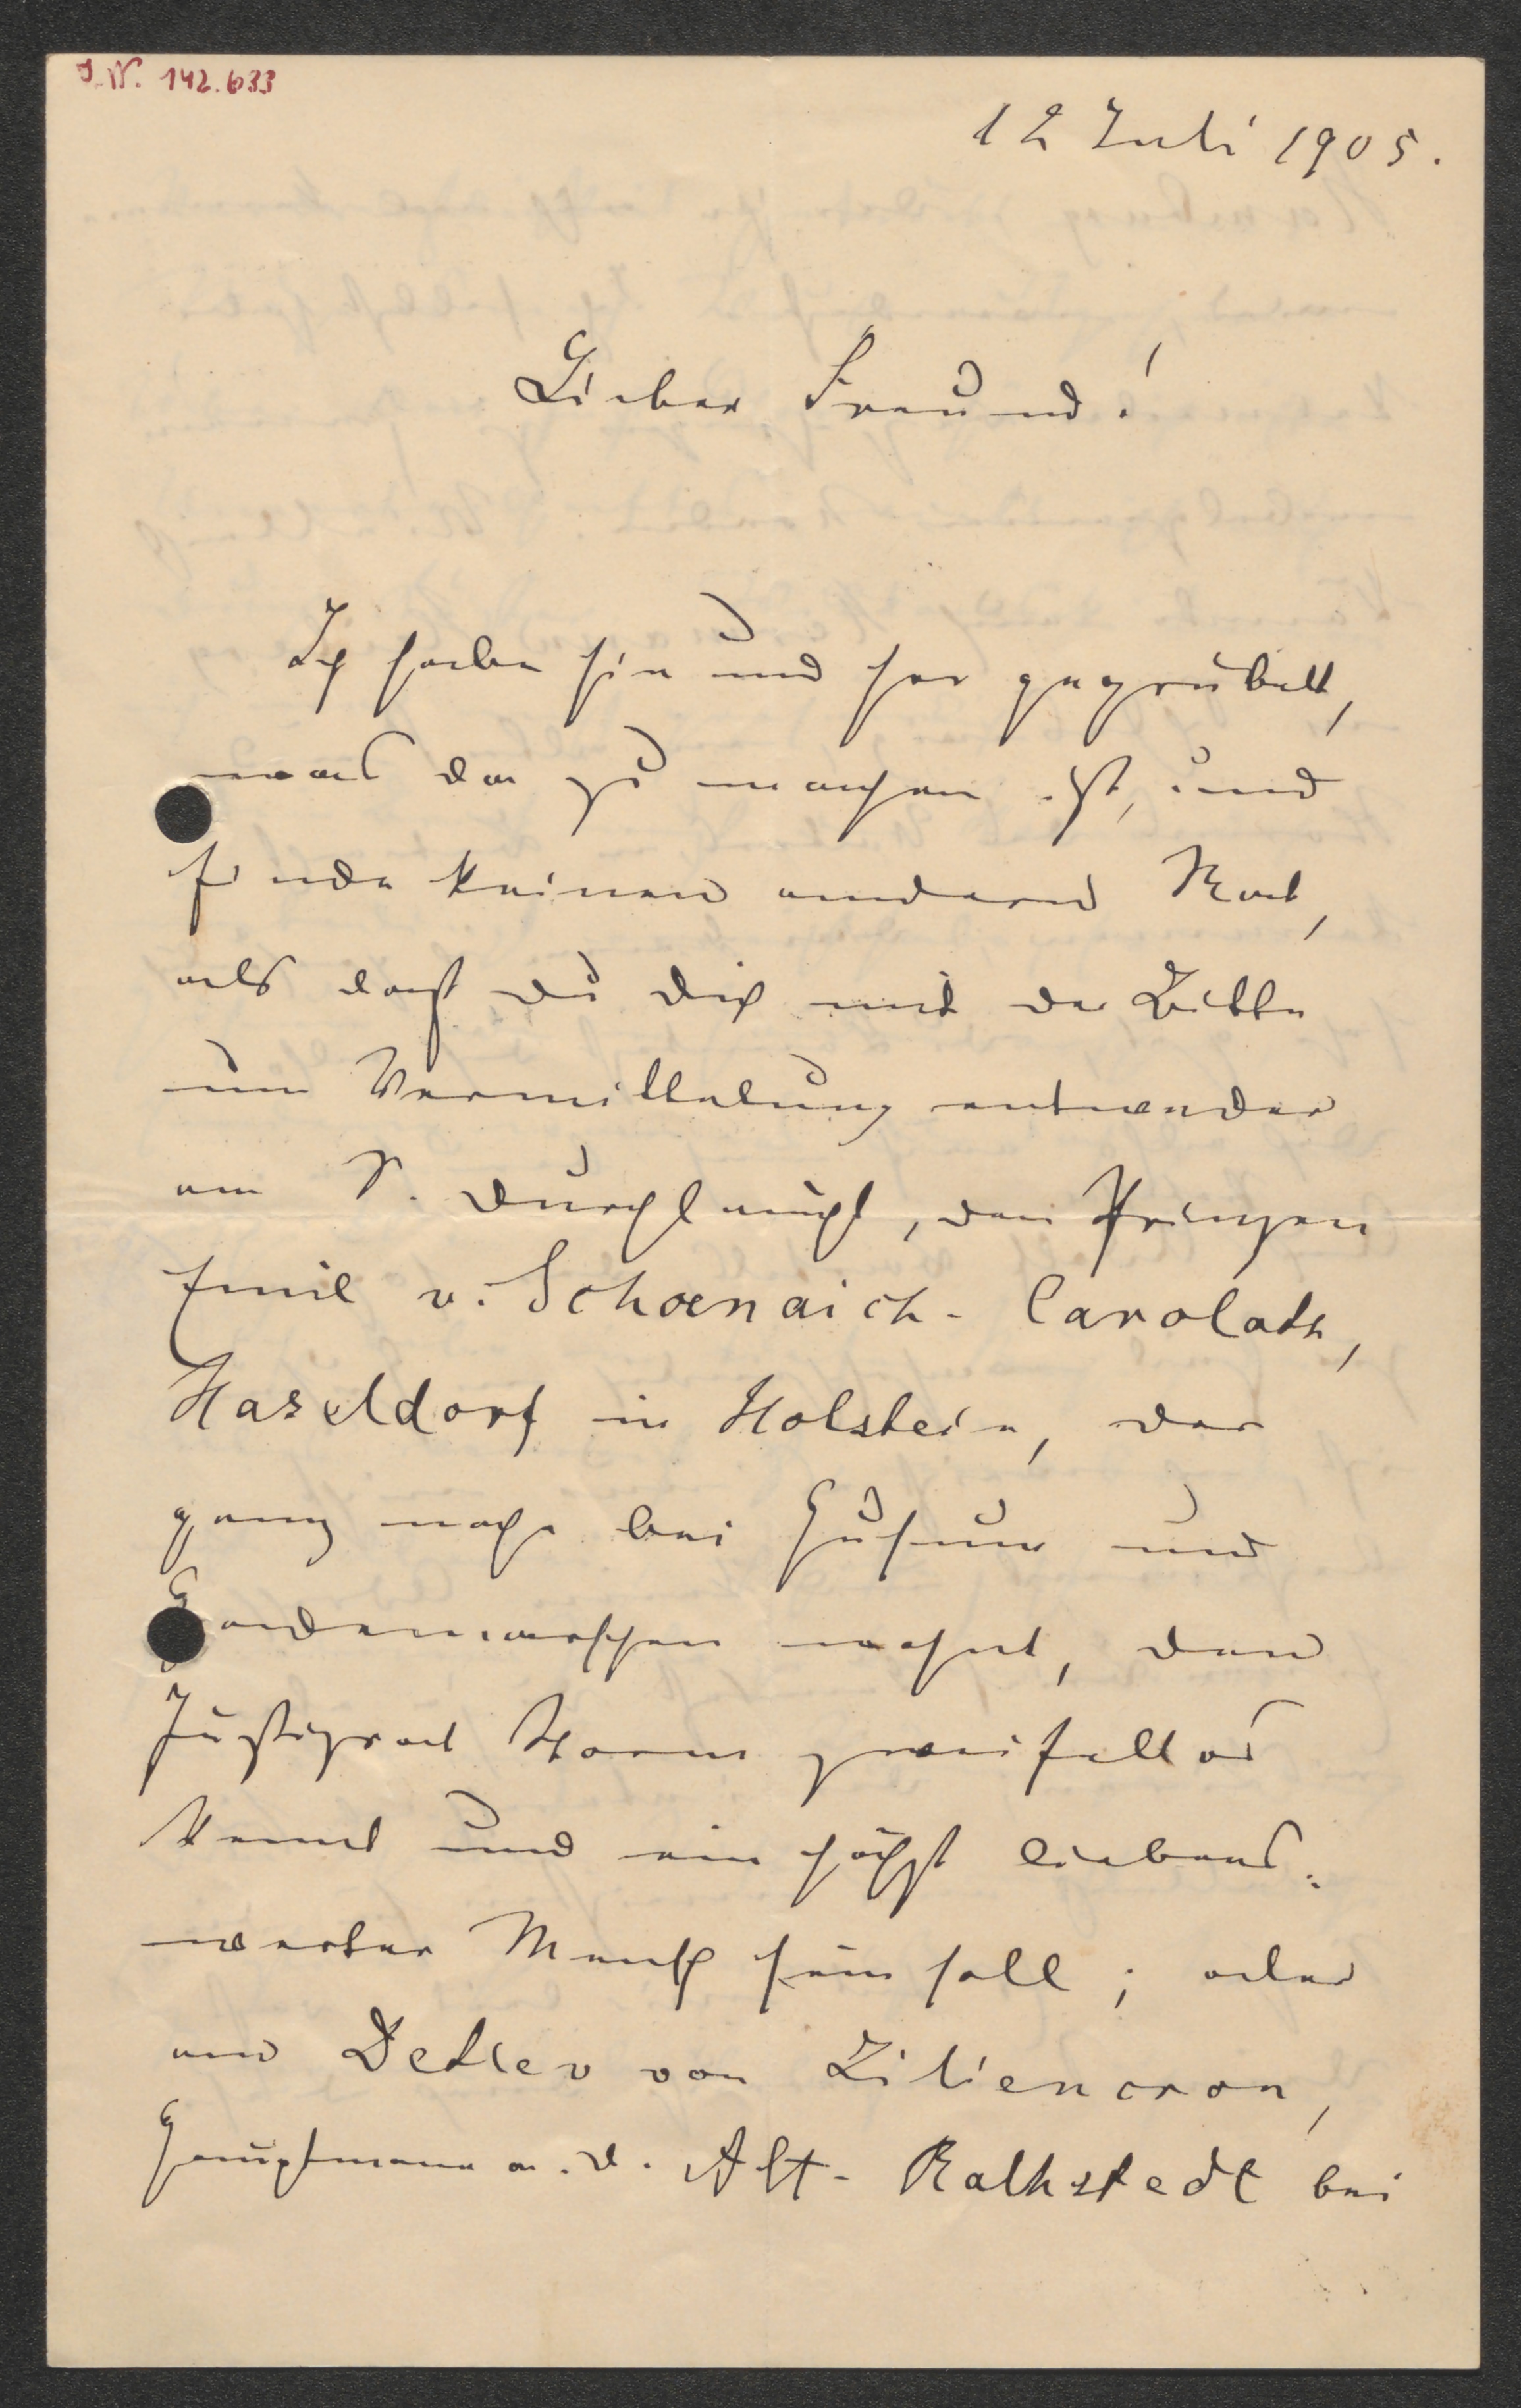 J.N. 142.633
12 Juli 1905.
Lieber Freund!
Ich habe hin und her gegrübelt,
was da zu machen ist, und
finde keinen andern Rat,
als daß du dich mit der Bitte
um Vermittelung entweder
an S. Durchlaucht, den Prinzen
Emil v. Schoenaich-Carolath,
Haseldorf in Holstein, der
ganz nahe bei Husum und
Hademarschen wohnt, den
Justizrat Storm zweifellos
kennt und ein höchst liebens:
werter Mensch sein soll; oder
an Detlev von Liliencron,
Hauptmann a. D. Alt-Ralhstedt bei